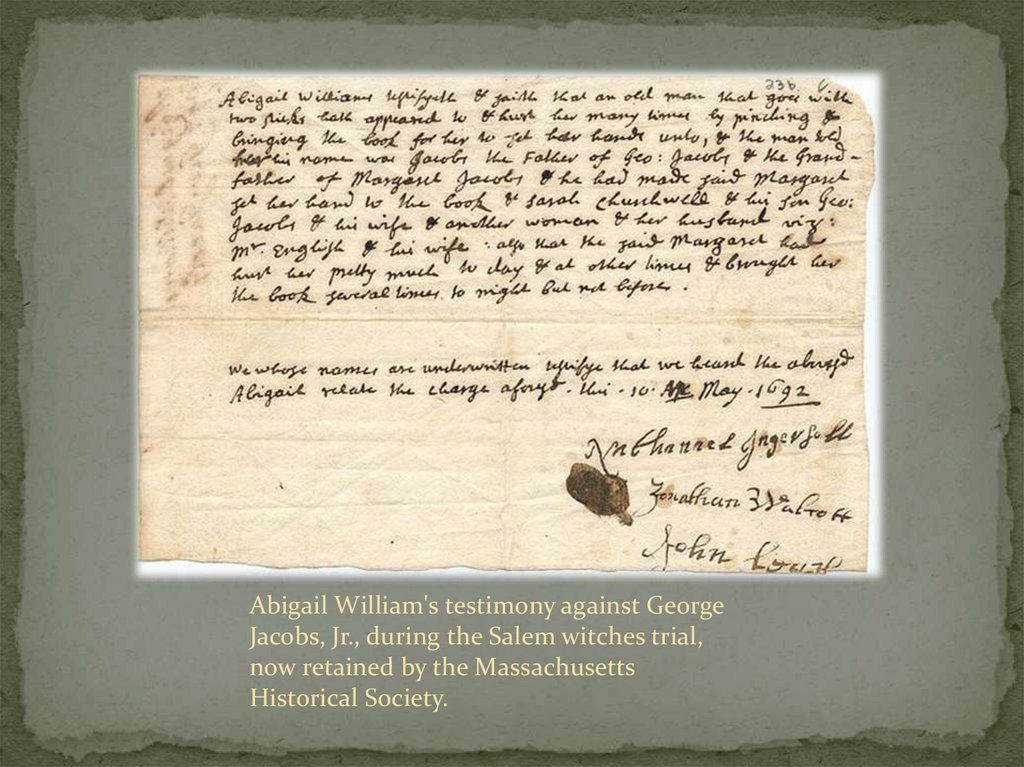 236
Abigail Williams testifyeth & saith that an old man that goes with
two sticks hath appeared to & hurt her many times by pinching &
bringing the book for her to set her hand unto, & the man told
her his name was Jacobs the Father of Geo: Jacobs & the Grand-
father of Margaret Jacobs & he had made said Margaret
set her hand to the book & Sarah Churchwell & his son Geo:
Jacobs & his wife & another woman & her husband viz:
Mr. English & his wife : also that the said Margaret had
hurt her pretty much to day & at other times & brought her
the book several times to night but not before.
We whose names are underwritten testifye that we heard the abovesd
Abigail relate the charge aforesd. this . 10. May . 1692
Nathanael Ingersoll
Jonathan Walcott
John
Abigail William's testimony against George
Jacobs, Jr., during the Salem witches trial,
now retained by the Massachusetts
Historical Society.